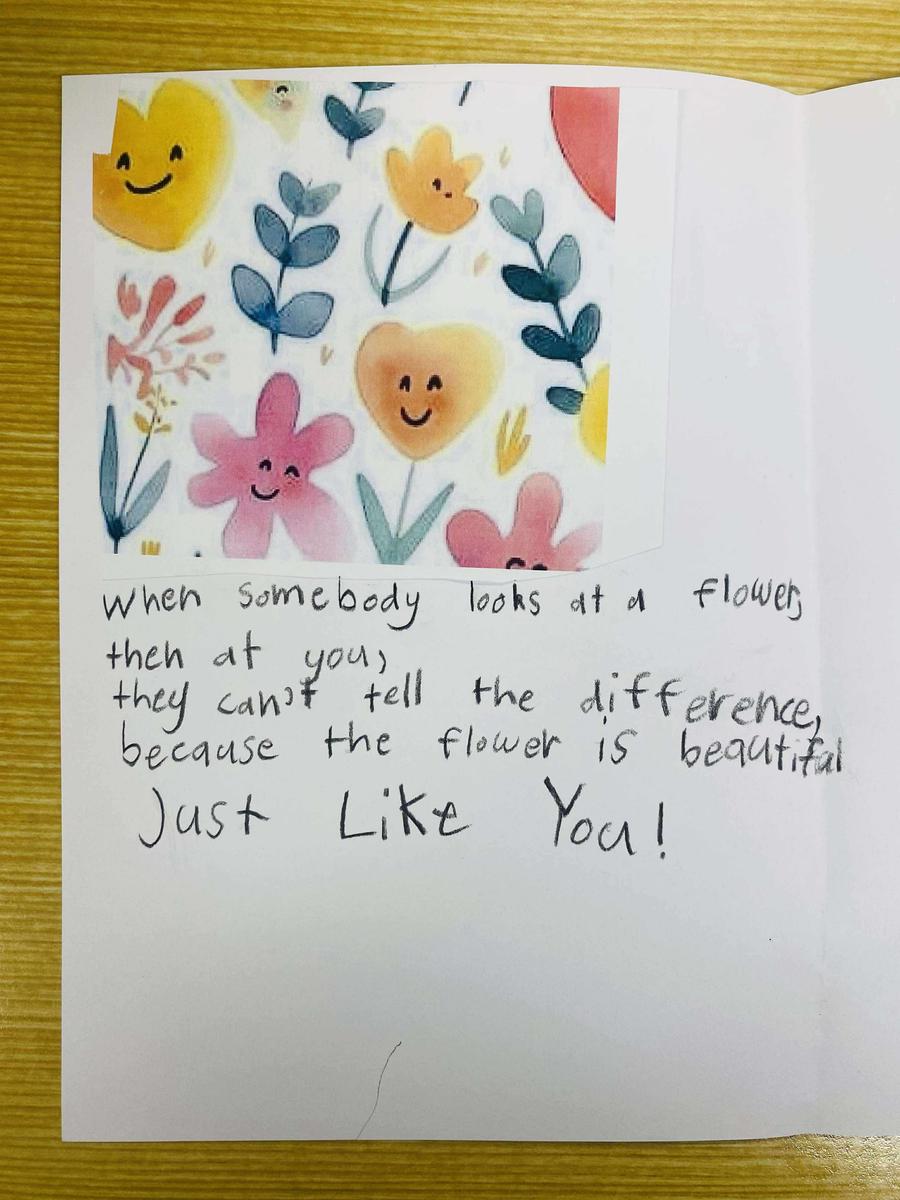 When somebody looks at a flower,
then at you,
they can't tell the difference,
because the flower is beautiful
Just Like You!